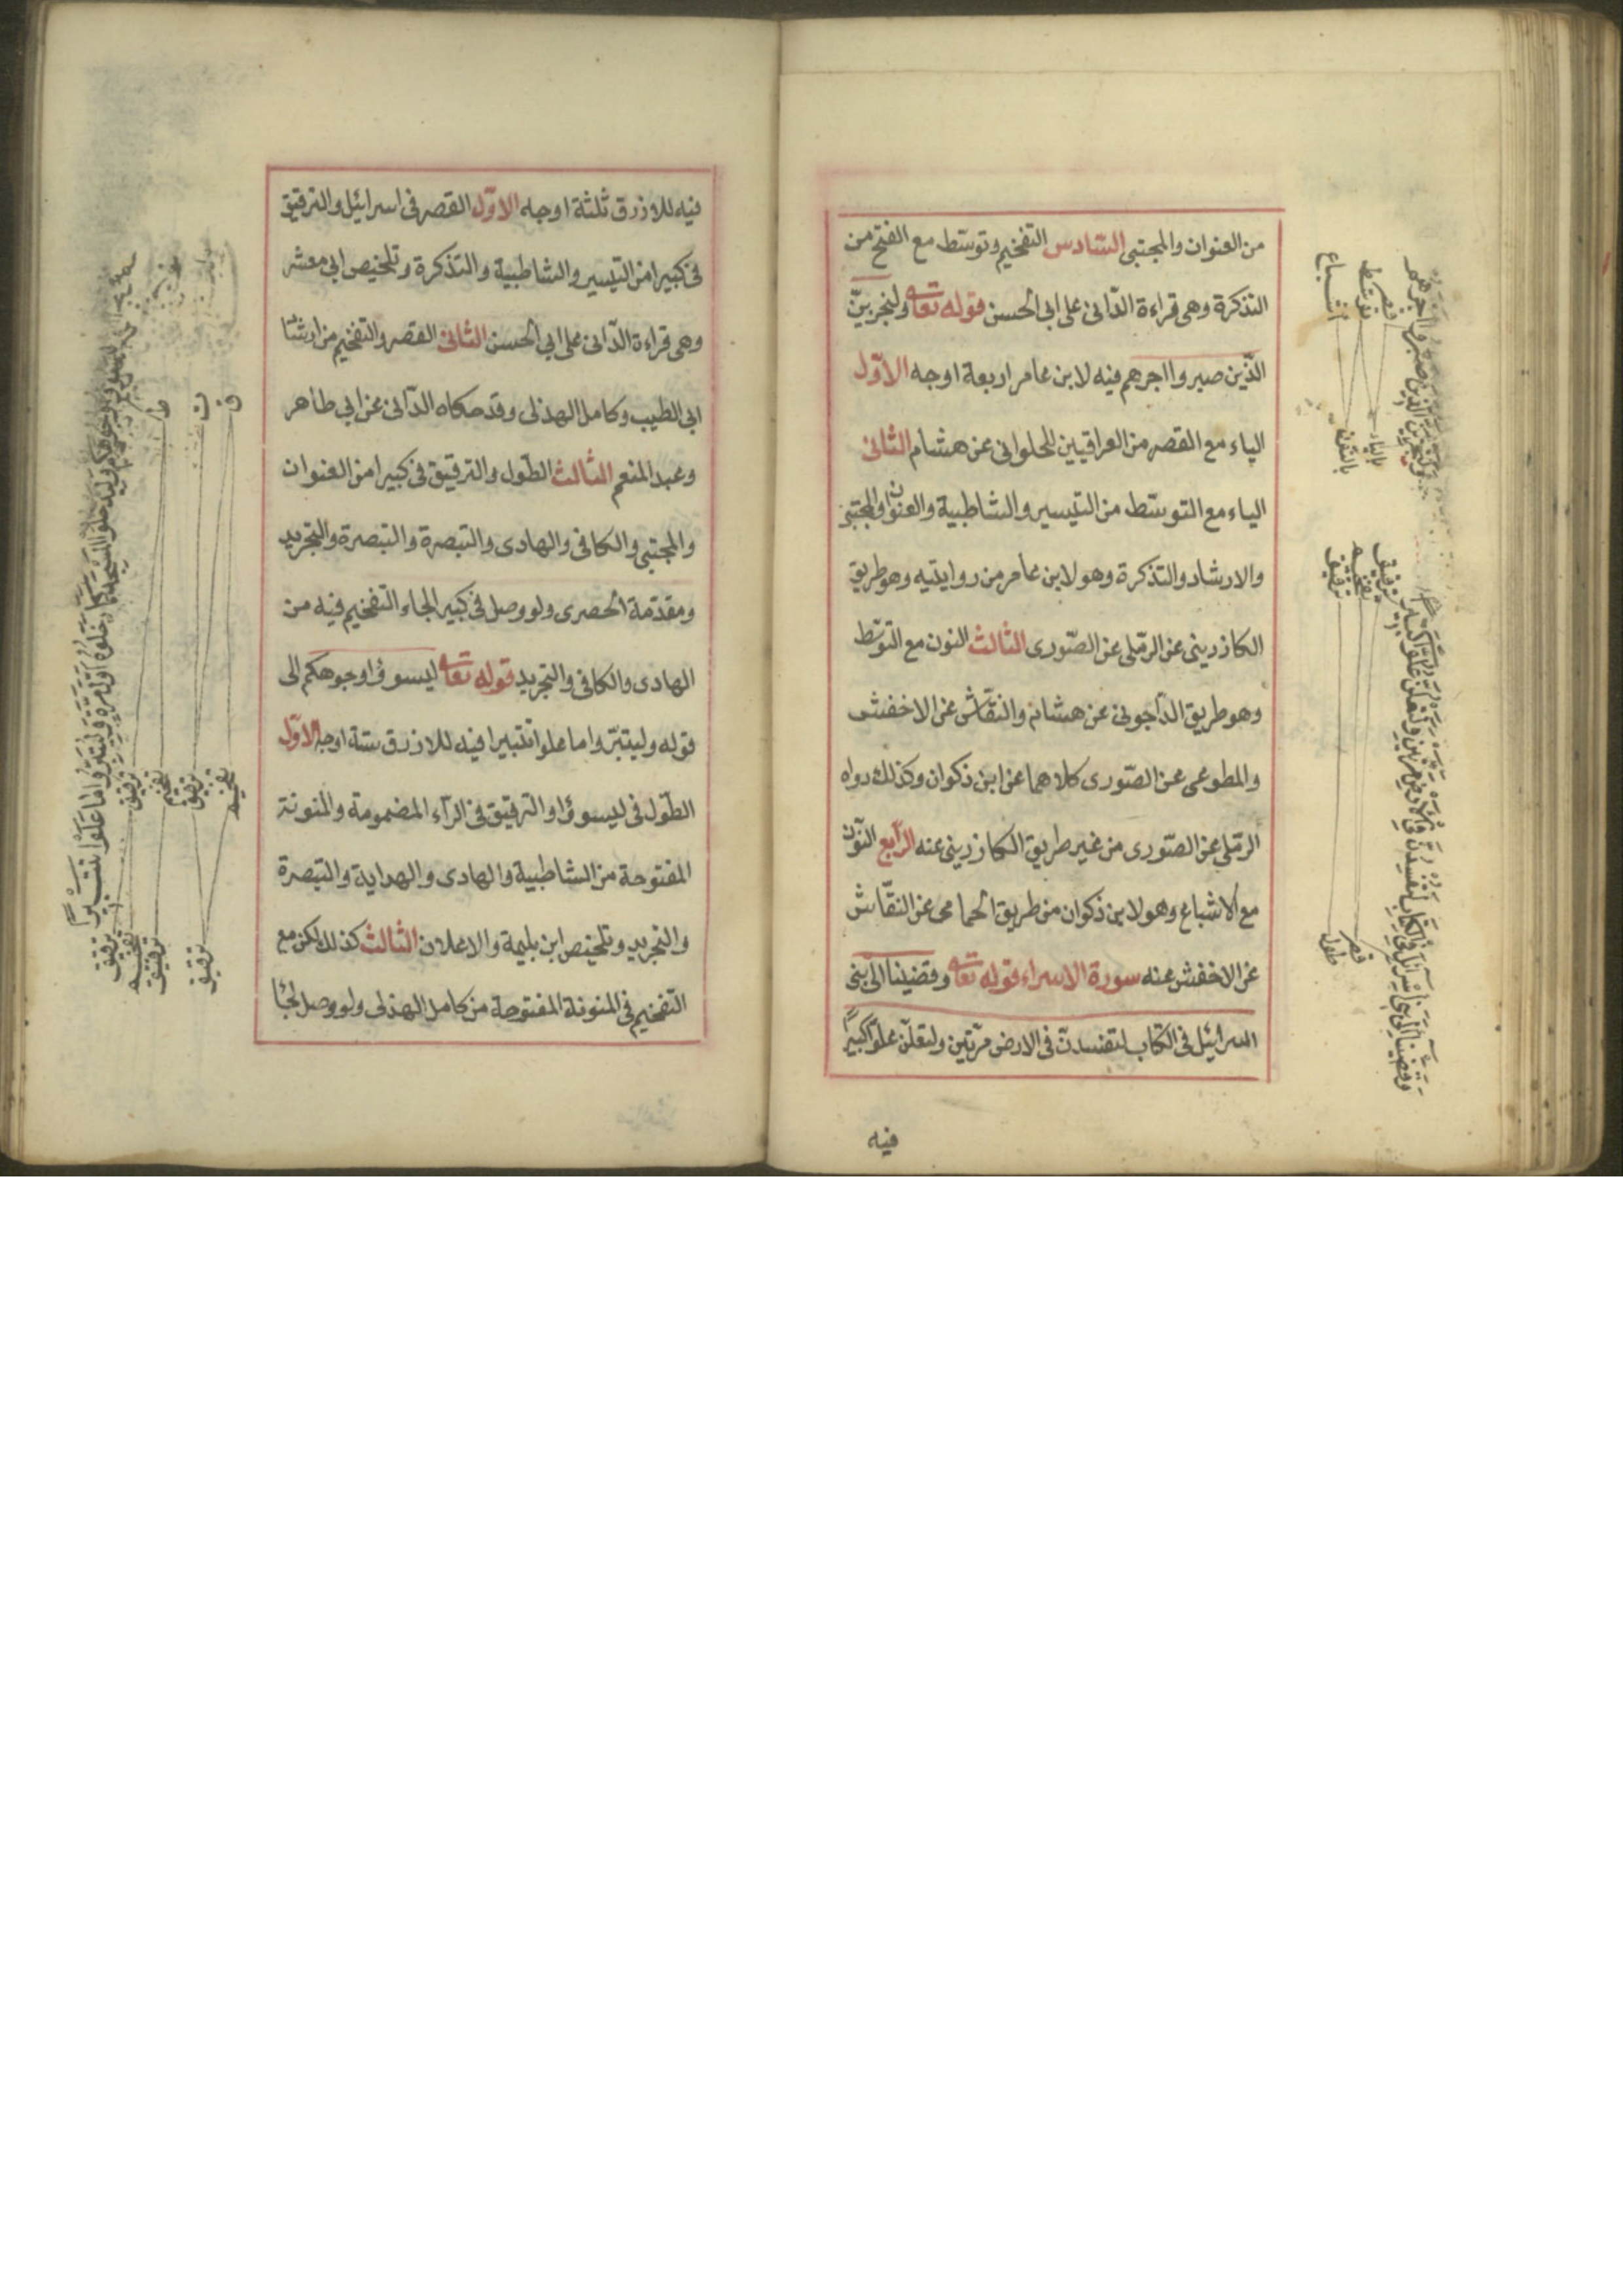 من العنوان والمجتبى السادس التفخيم وتوسّط مع الفتح من
التذكرة وهى قراءة الدّانى على ابى الحسن قوله تعالى ولنجزينّ
الذّين صبروا اجرهم فيه لابن عامر اربعة اوجه الاوّل
الياء مع القصر من العراقيين للحلوانى عن هشام الثانى
الياء مع التوسّط من التيسير والشاطبية والعنوان والمجتبى
والارشاد والتذكرة وهو لابن عامر من روايتيه وهو طريق
الكازرينى عن الرّملى عن الصّورى الثالث النون مع التوسّط
وهو طريق الدّاجونى عن هشام والنقّاش عن الاخفش
والمطوعى عن الصّورى كلاهما عن ابن ذكوان وكذلك رواه
الرمّلى عن الصّورى من غير طريق الكازرينى عنه الرّابع النّون
مع الاشباع وهو لابن ذكوان من طريق الحمامى عن النقّاش
عن الاخفش عنه سورة الاسراء قوله تعالى وقضينا الى بنى
اسرائيل فى الكتاب لتفسدنّ فى الارض مرّتين ولتعلنّ علوّا كبيرًا
فيه
ولنجزين الذين صبروا اجرهم
قصر
توسّط
اشباع
بالياء
بالنّون
وقضينا الى بنى اسرائيل فى الكتاب لتفسدنّ فى الارض مرتين ولتعلنّ علوّا كبيرا
ترقيق
تفخيم
ترقيق
قصر
طول
فيه للازرق ثلثة اوجه الاوّل القصر فى اسرائيل والترقيق
فى كبيرا من التيسير والشاطبية والتذكرة وتلخيص ابى معشر
وهى قراءة الدّانى على ابى الحسن الثانى القصر والتفخيم من ارشاد
ابى الطيب وكامل الهذلى وقد حكاه الدّانى عن ابى طاهر
وعبد المنعم الثالث الطّول والترقيق فى كبيرا من العنوان
والمجتبى والكافى والهادى والتبصرة والتبصرة والتجريد
ومقدّمة الحصرى ولو وصل فى كبير الجاء التفخيم فيه من
الهادى والكافى والتجريد قوله تعالى ليسوؤا وجوهكم الى
قوله وليتبّروا ما علوا تتبيرا فيه للازرق ستة اوجه الاوّل
الطّول فى ليسوؤا والترقيق فى الرّاء المضمومة والمنونة
المفتوحة من الشاطبية والهادى والهداية والتبصرة
والتجريد وتلخيص ابن بليمة والاعلان الثالث كذلك لكن مع
التّفخيم فى المنونة المفتوحة من كامل الهذلى ولو وصل لجئا
ليسوؤا وجوهكم وليدخلوا المسجد كما دخلوه اول مرة وليتبروا ما علوا تتبيرًا
ط
ت
ق
ترقيق
تفخيم
ترقيق
تفخيم
ترقيق
تفخيم
ترقيق
ترقيق